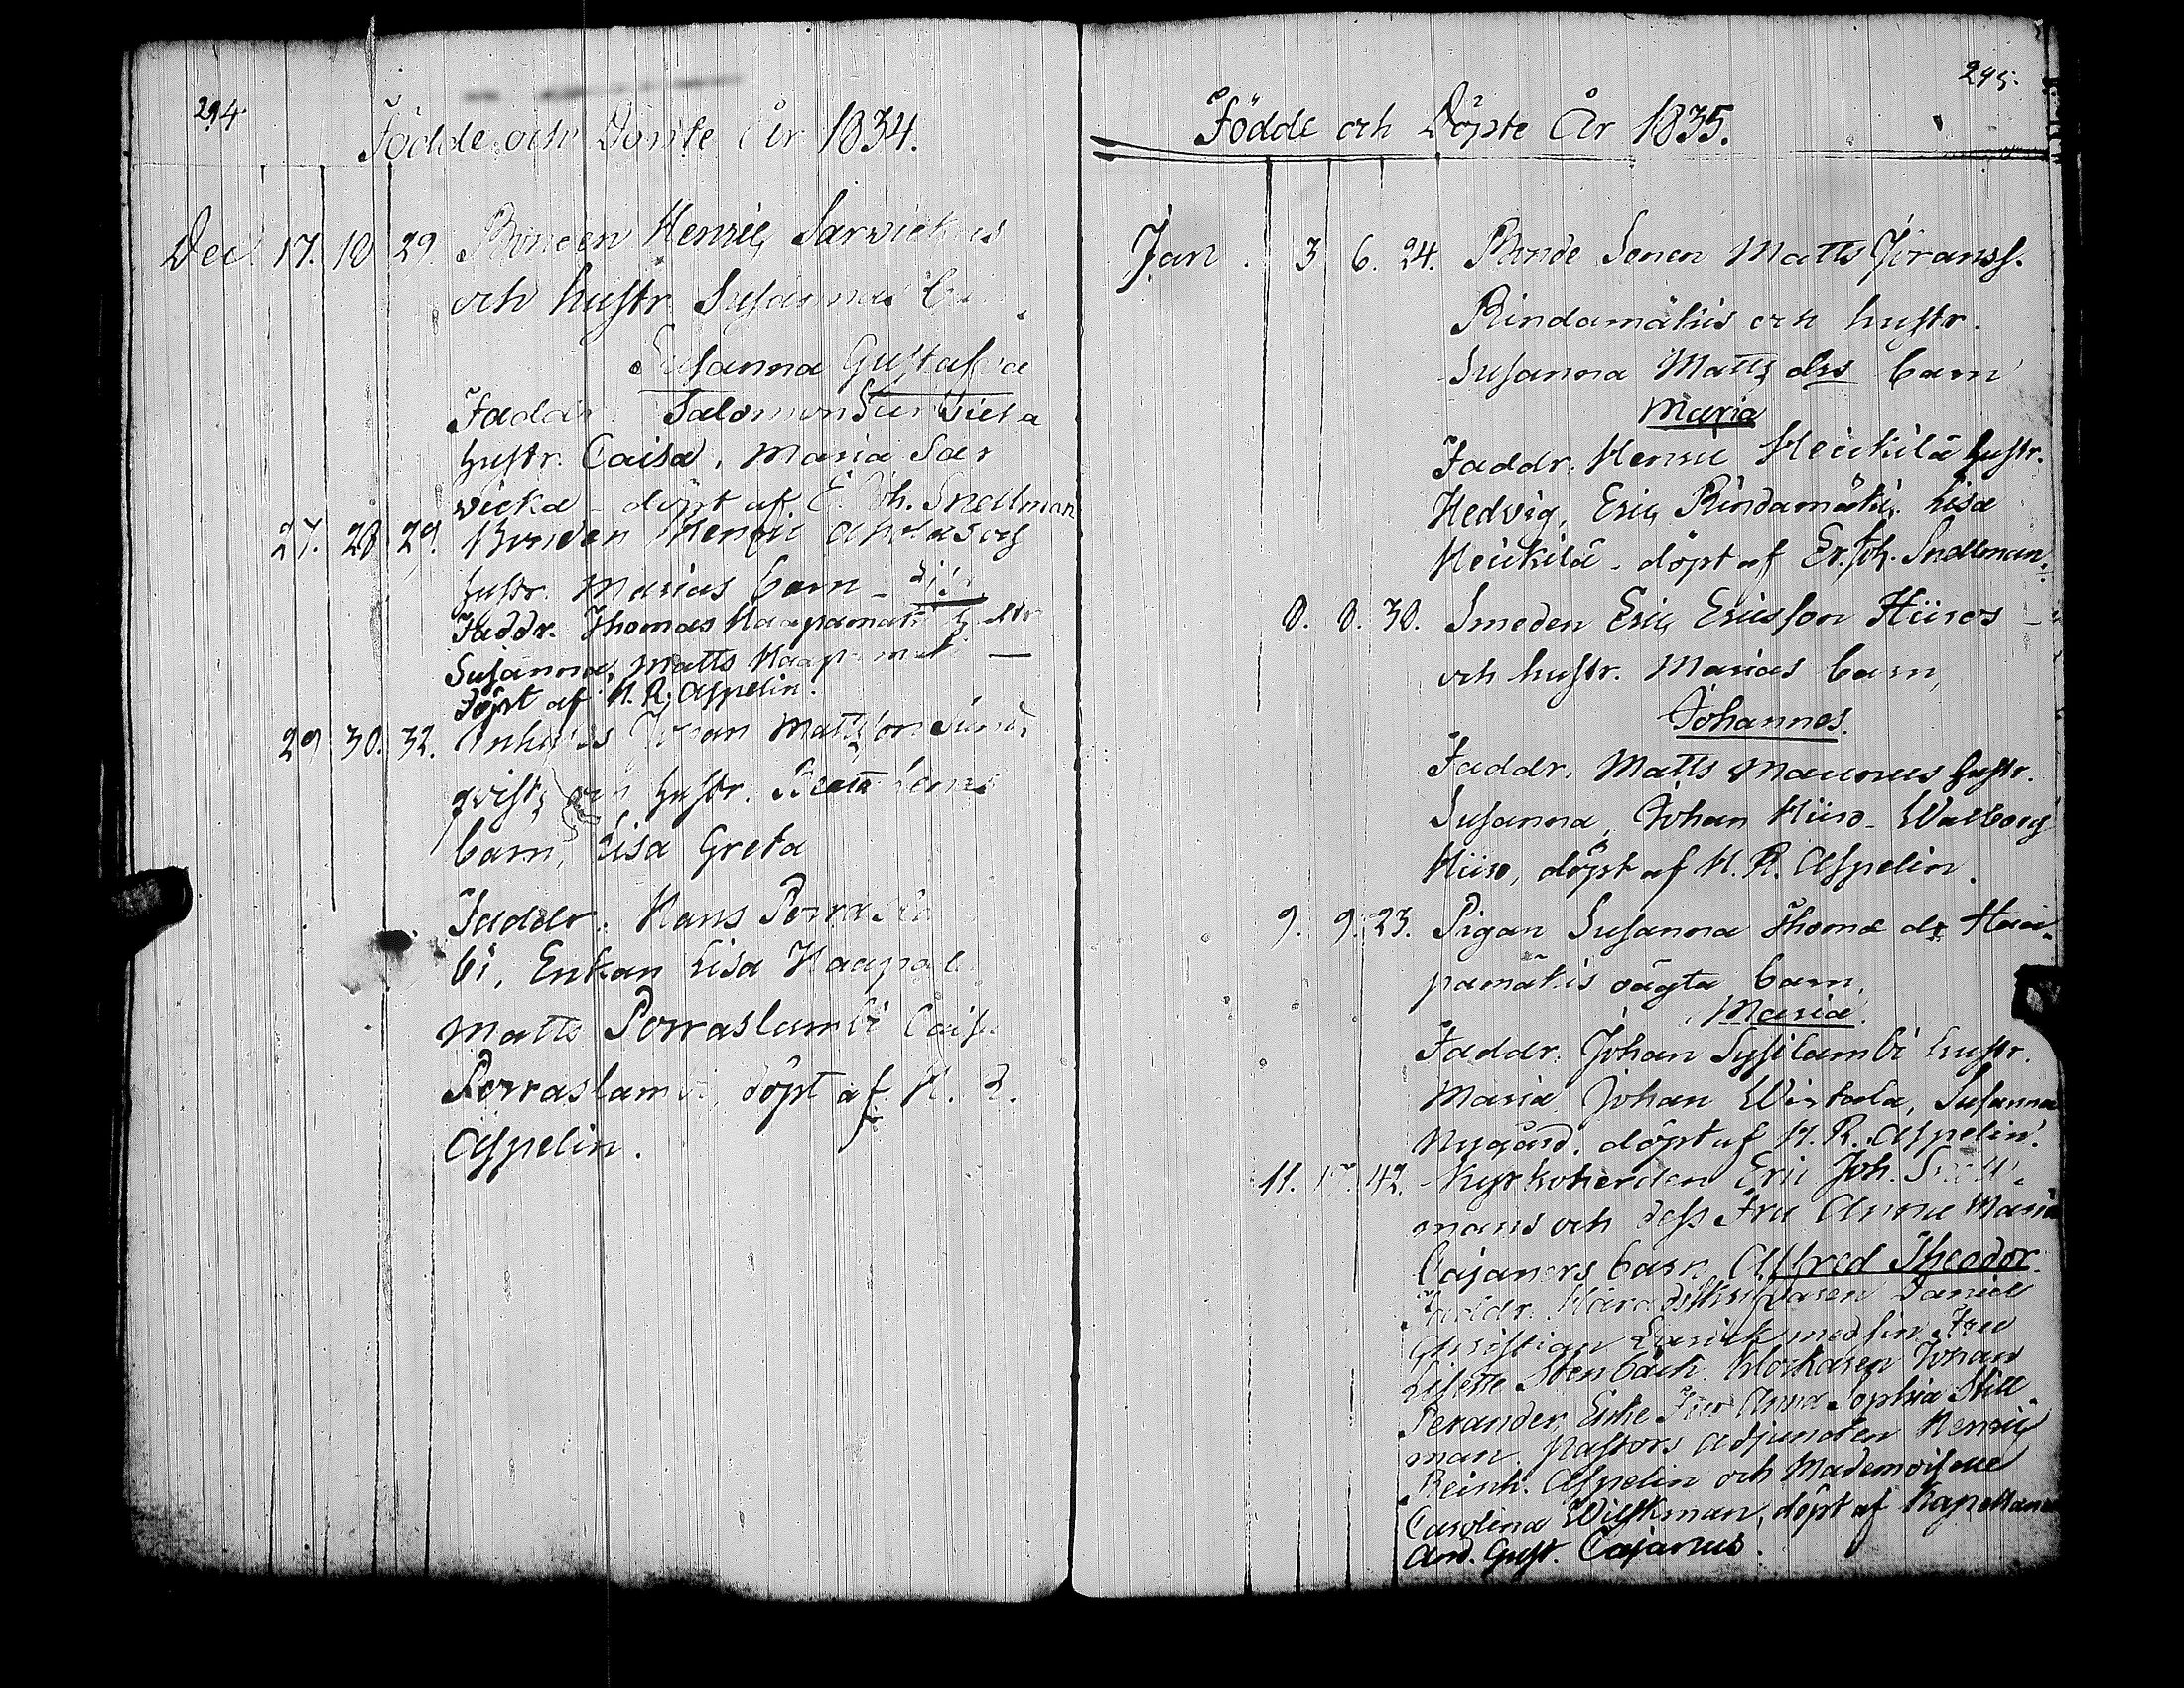 294.
Födde och Döpte År 1834.
Dec. 17. 18 29. Bonden Henric Sarvickas
och hustr. Susannas barn
Susanna Gustafva
Faddr. Salomon Sarvicka
hustr. Caisa, Maria Sar
vicka - döpt af E. Joh. Snellman
27. 28 29. Bonden Henric Aholas och
hustr. Marias barn -
Faddr. Thomas Haapamäki hustr
Susanna, Matts Haapamäki —
döpt af H. R. Aspelin.
29 30. 32. Inhyses Johan Mattsson Sund
qvists och hustr. Beata
barn, Lisa Greta
Faddr. Hans Porraslam
bi, Enkan Lisa
Matts Porraslambi Caisa
Porraslambi, döpt af H. R.
Aspelin.
295.
Födde och Döpte År 1835.
Jan. 3 6. 24. Bonde Sonen Matts Göranss.
Rindamäkis och hustr.
Susanna Matts drs barn
Maria
Faddr. Henric Heickilä hustr.
Hedvig, Eric Rindamäki, Lisa
Heickilä - döpt af Er. Joh. Snellman.
8. 8. 30. Smeden Eric Ericsson Hiiros
och hustr. Marias barn,
Johannes.
Faddr. Matts Maunus hustr.
Susanna, Johan Hiiro - Walborg
Hiiro, döpt af H. R. Aspelin.
9. 9. 23. Pigan Susanna Thomæ dr Haa-
pamäkis oägta barn,
Maria.
Faddr. Johan Sysilambi hustr.
Maria, Johan Wirtala, Susanna
Nygård, döpt af H. R. Aspelin.
11. 42. Kyrkoherden Eric Joh. Snell-
mans och dess Fru Anna Maria
Cajaners barn Alfred Theodor.
Faddr. Häradsskrifvaren Daniel
Christian Lasick med sin Fru
Lisette Stenbäck. Klockaren Johan
Perander, Enke Fru Anna Sophia Still
man. Pastors Adjuncten Henric
Reinh. Aspelin och Mademoiselle
Carolina Wilskman, döpt af Kapellanen
And. Gust. Cajanus.